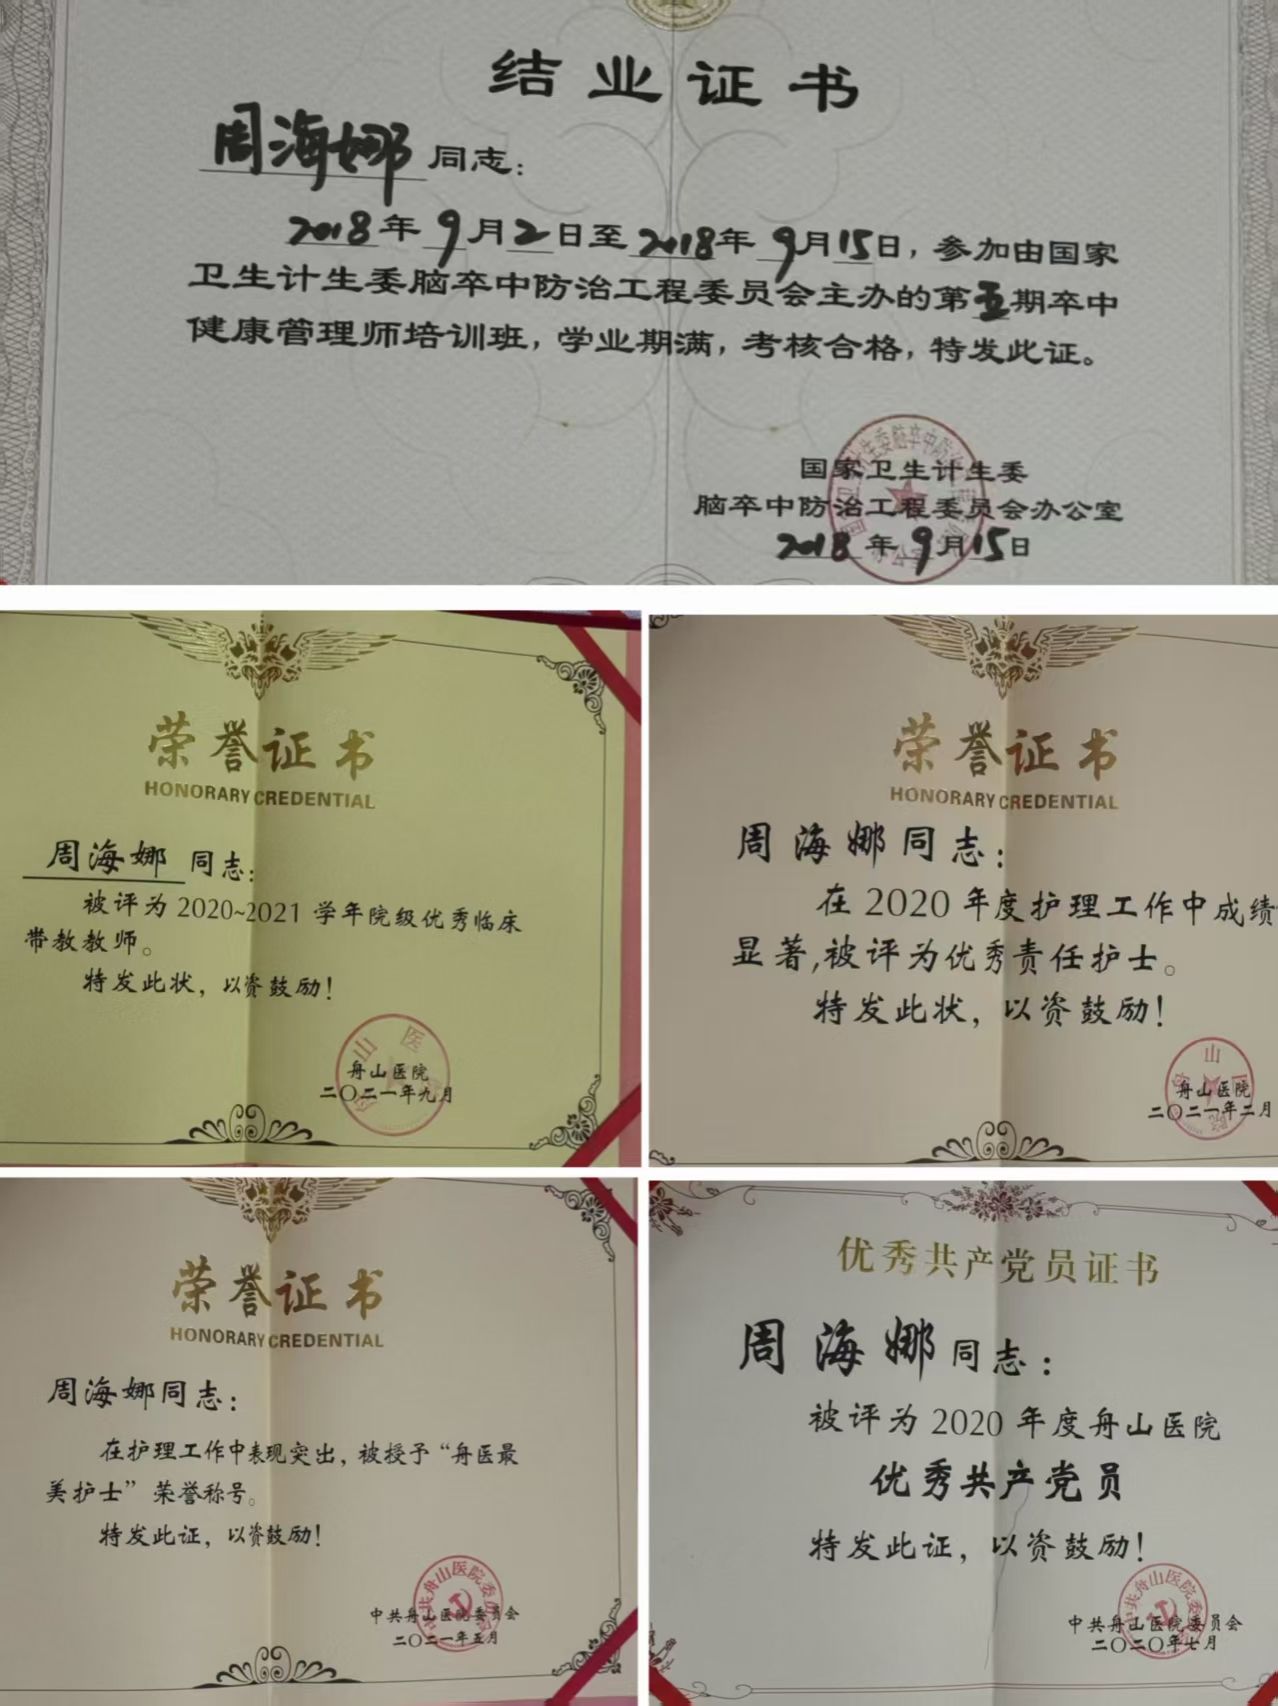 结业证书
周海娜同志：
2018年9月2日至2018年9月15日，参加由国家
卫生计生委脑卒中防治工程委员会主办的第五期卒中
健康管理师培训班，学业期满，考核合格，特发此证。
国家卫生计生委
脑卒中防治工程委员会办公室
2018年9月15日
荣誉证书
HONORARY CREDENTIAL
周海娜同志：
被评为2020~2021学年院级优秀临床
带教教师。
特发此状，以资鼓励！
舟山医院
二〇二一年九月
荣誉证书
HONORARY CREDENTIAL
周海娜同志：
在2020年度护理工作中成绩
显著，被评为优秀责任护士。
特发此状，以资鼓励！
舟山医院
二〇二一年二月
荣誉证书
HONORARY CREDENTIAL
周海娜同志：
在护理工作中表现突出，被授予“舟医最
美护士”荣誉称号。
特发此证，以资鼓励！
中共舟山医院委员会
二〇二一年五月
优秀共产党员证书
周海娜同志：
被评为2020年度舟山医院
优秀共产党员
特发此证，以资鼓励！
中共舟山医院委员会
二〇二〇年七月